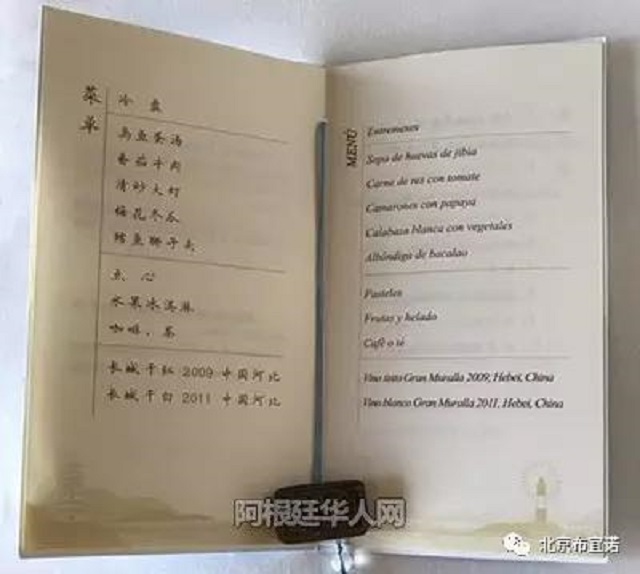 菜单
冷 盘
乌鱼蛋汤
番茄牛肉
清炒大虾
梅花冬瓜
鳕鱼狮子头
点 心
水果冰淇淋
咖啡、茶
长城干红 2009 中国河北
长城干白 2011 中国河北
MENÚ
Entremeses
Sopa de huevas de jibia
Carne de res con tomate
Camarones con papaya
Calabaza blanca con vegetales
Albóndiga de bacalao
Pasteles
Frutas y helado
Café o té
Vino tinto Gran Muralla 2009, Hebei, China
Vino blanco Gran Muralla 2011, Hebei, China
阿根廷华人网
北京布宜诺